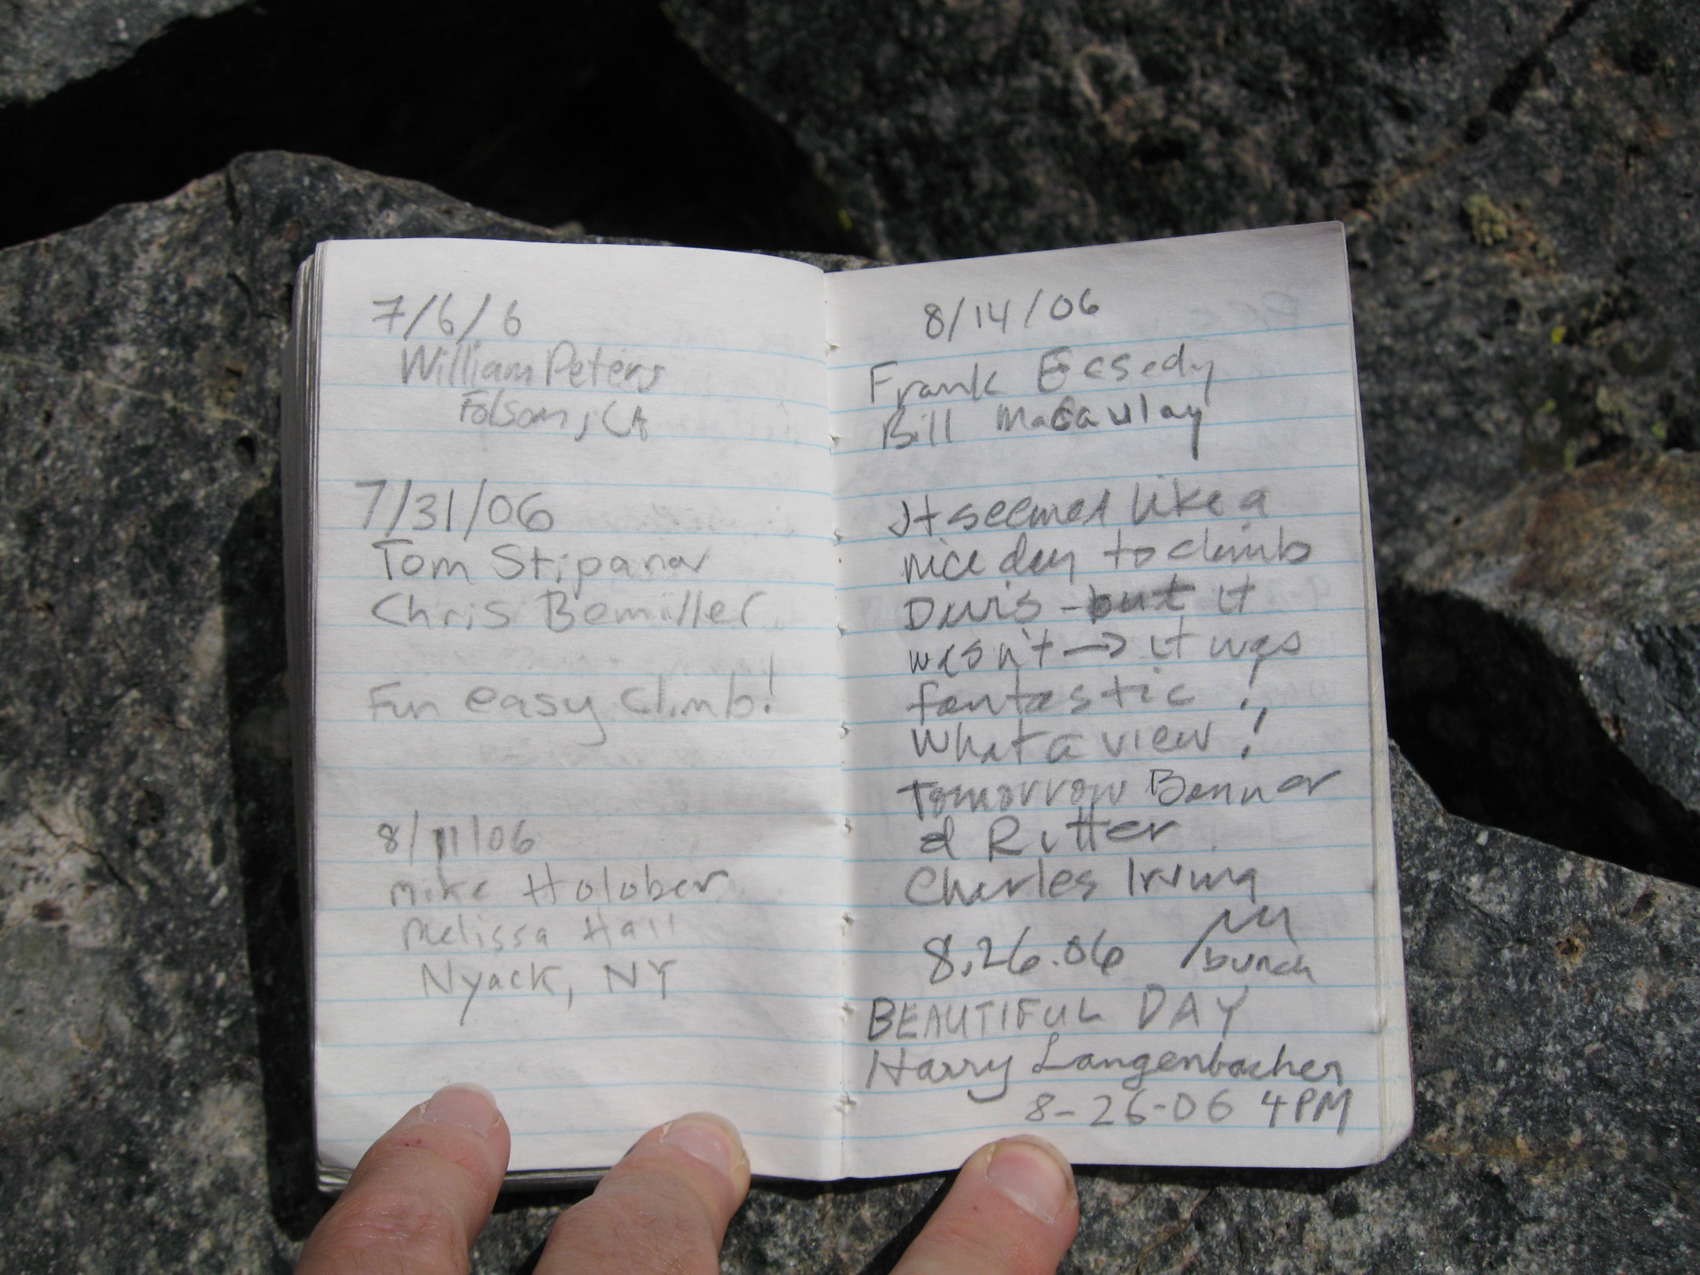 7/6/6
William Peters
Folsom, CA
7/31/06
Tom Stipanov
Chris Bemiller
Fun easy climb!
8/11/06
Mike Holober
Melissa Hall
Nyack, NY
8/14/06
Frank Ecsedy
Bill Macaulay
It seemed like a
nice day to climb
Davis - but it
wasn't → it was
fantastic !
What a view !
Tomorrow Banner
& Ritter
Charles Irving
8.26.06
BEAUTIFUL DAY
Harry Langenbacher
8-26-06 4PM